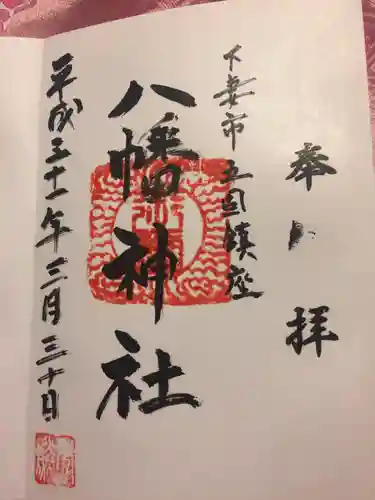 奉拝
下妻市五箇鎮座
八幡神社
平成三十一年三月三十日